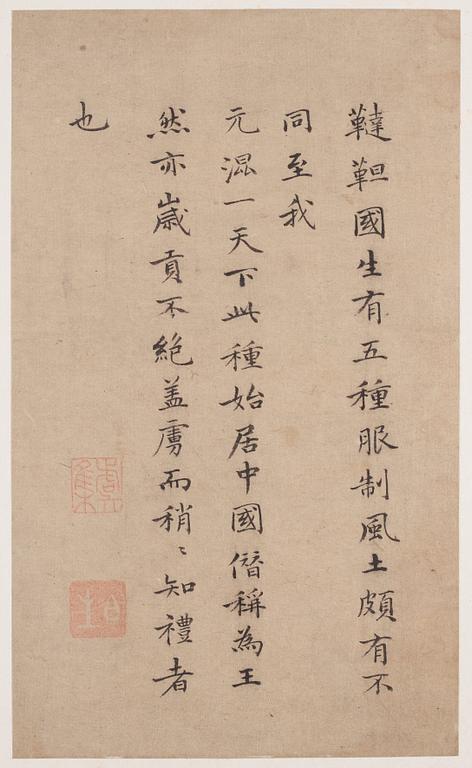 韃靼國生有五種服制風土頗有不
同至我
元混一天下此種始居中國僭稱為王
然亦歲貢不絕盖虜而稍〻知禮者
也
虞集